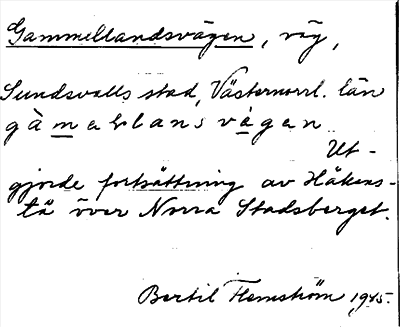 Gammellandsvägen, väg,
Sundsvalls stad, Västernorrl. län
gàmablansvägen
Ut-
gjorde fortsättning av Håkans-
tä över Norra Stadsberget.
Bertil Flemström 1945.